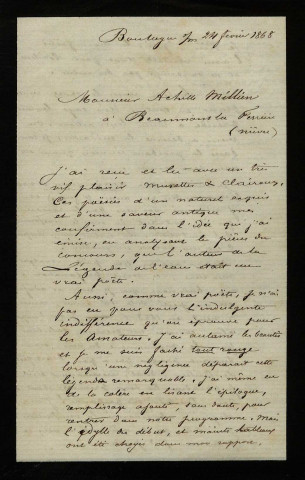 Boulogne s/m 24 février 1868
Monsieur Achille Millien
à Beaumont la Ferrière
(nièvre)
J'ai reçu et lu avec un très
vif plaisir Musettes & Clairons,
Ces poésies d'un naturel exquis
et d'une saveur antique me
confirment dans l'idée que j'ai
émise, en analysant les pièces du
concours, que l'auteur de la
Légende de l'eau était un
vrai poète.
Aussi, comme vrai poète, je n'ai
pas eu pour vous l'indulgente
indifférence qu'on éprouve pour
les Amateurs. J'ai acclamé les beautés
et je me suis fâché tout rouge
lorsqu'une négligence déparait cette
légende remarquable. J'ai même eu
de la colère en lisant l'épilogue,
remplissage ajouté, sans doute, pour
rentrer dans notre programme. Mais
l'idylle du début, et maints tableaux
ont été choyés dans mon rapport,